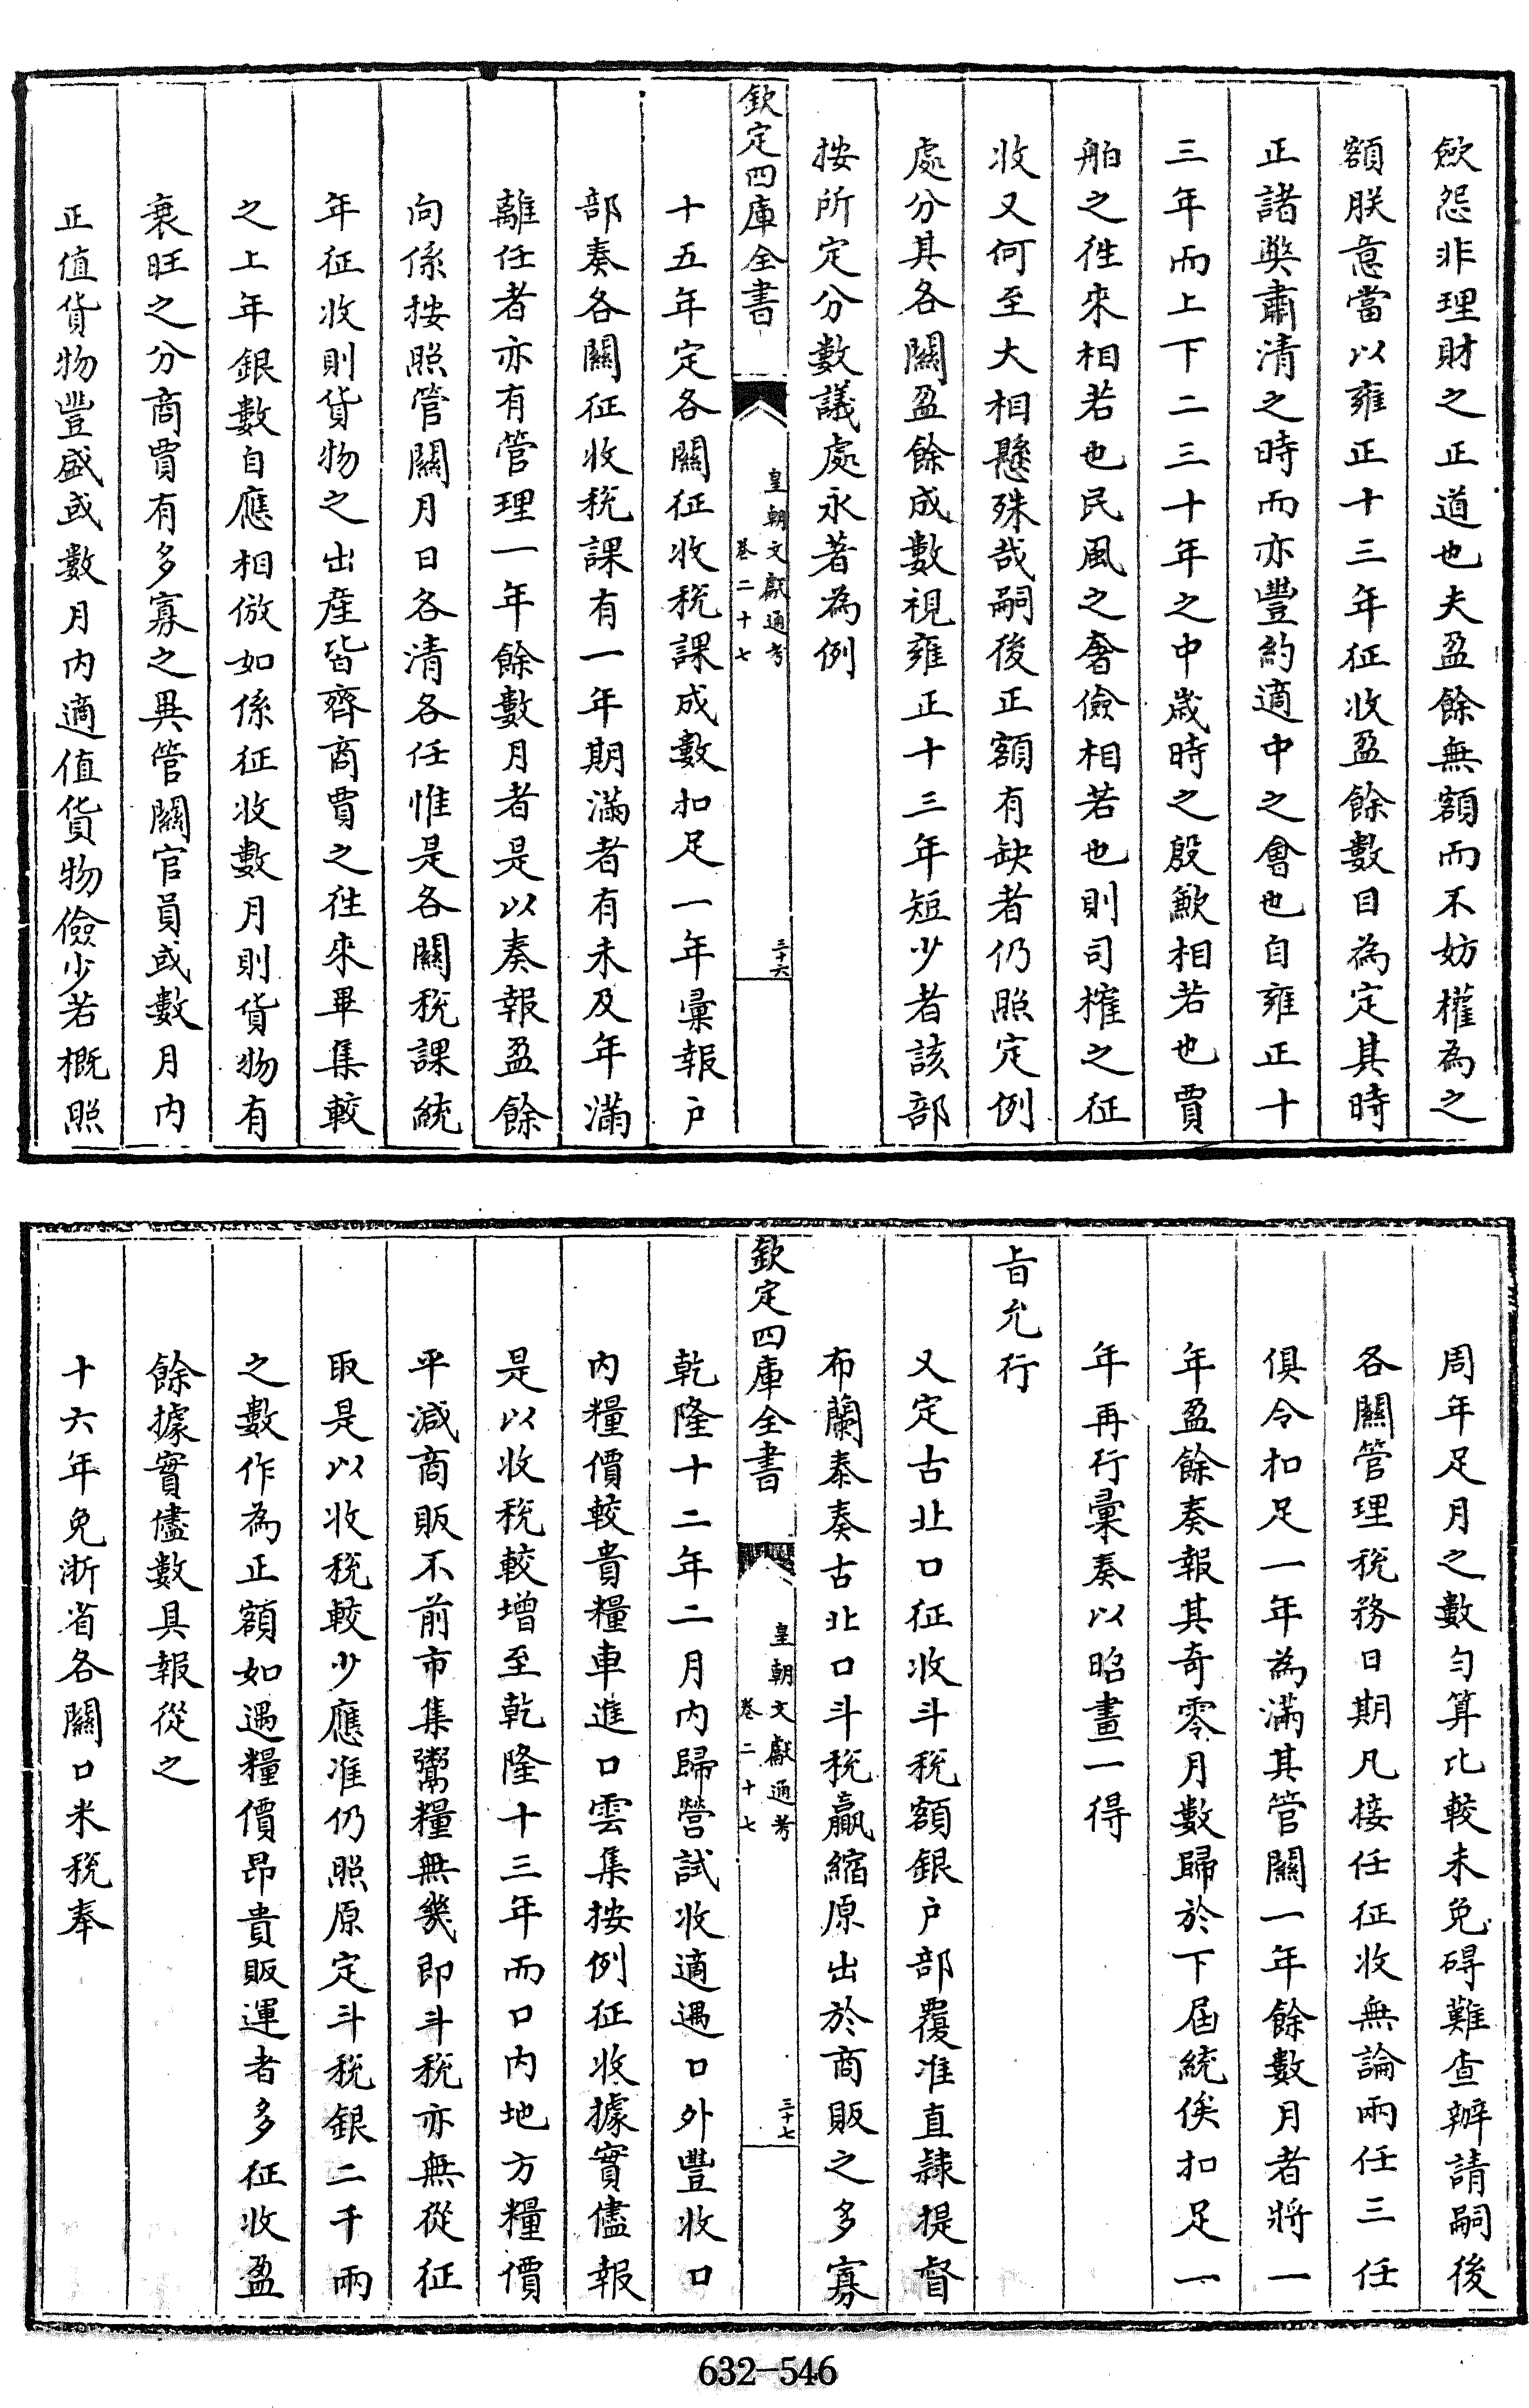 斂怨非理財之正道也夫盈餘無額而不妨權為之
額朕意當以雍正十三年征收盈餘數目為定其時
正諸獘肅清之時而亦豐約適中之會也自雍正十
三年而上下二三十年之中歲時之殷歉相若也賈
舶之徃來相若也民風之奢儉相若也則司榷之征
收又何至大相懸殊哉嗣後正額有缺者仍照定例
處分其各關盈餘成數視雍正十三年短少者該部
按所定分數議處永著為例
欽定四庫全書
皇朝文獻通考
卷二十七
三十六
十五年定各關征收稅課成數扣足一年彙報户
部奏各關征收稅課有一年期滿者有未及年滿
離任者亦有管理一年餘數月者是以奏報盈餘
向係按照管關月日各清各任惟是各關稅課統
年征收則貨物之出產皆齊商賈之徃來畢集較
之上年銀數自應相倣如係征收數月則貨物有
衰旺之分商賈有多寡之異管關官員或數月內
正值貨物豐盛或數月內適值貨物儉少若概照
周年足月之數勻算比較未免碍難查辦請嗣後
各關管理稅務日期凡接任征收無論兩任三任
俱令扣足一年為滿其管關一年餘數月者將一
年盈餘奏報其奇零月數歸於下屆統俟扣足一
年再行彙奏以昭畫一得
旨允行
又定古北口征收斗稅額銀户部覆准直隸提督
布蘭泰奏古北口斗稅贏縮原出於商販之多寡
欽定四庫全書
皇朝文獻通考
卷二十七
三十七
乾隆十二年二月內歸營試收適遇口外豐收口
內糧價較貴糧車進口雲集按例征收據實儘報
是以收稅較增至乾隆十三年而口內地方糧價
平減商販不前市集鬻糧無幾即斗稅亦無從征
取是以收稅較少應准仍照原定斗稅銀二千兩
之數作為正額如遇糧價昂貴販運者多征收盈
餘據實儘數具報從之
十六年免浙省各關口米稅奉
632-546